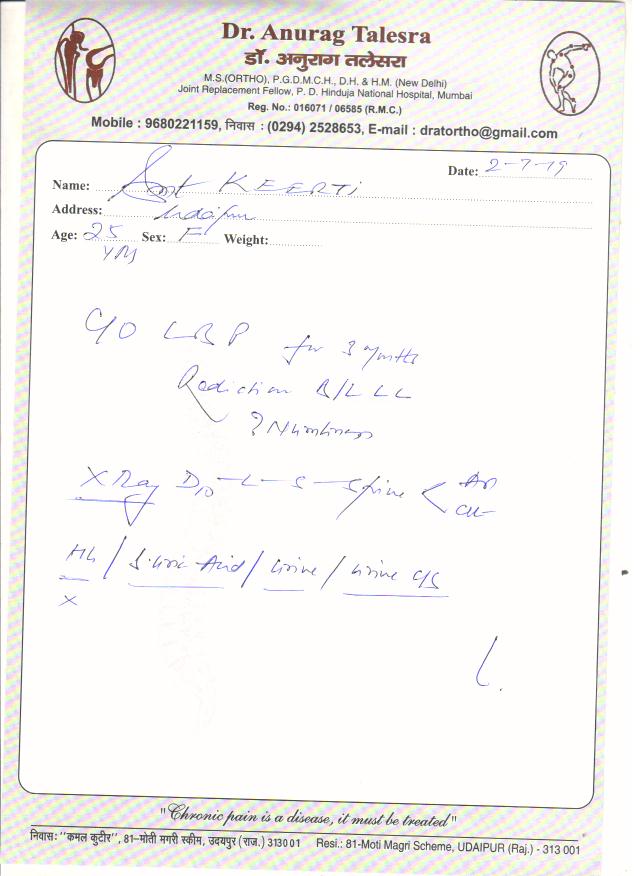 Dr. Anurag Talesra
डॉ. अनुराग तलेसरा
M.S.(ORTHO), P.G.D.M.C.H., D.H. & H.M. (New Delhi)
Joint Replacement Fellow, P. D. Hinduja National Hospital, Mumbai
Reg. No.: 016071 / 06585 (R.M.C.)
Mobile : 9680221159, निवास : (0294) 2528653, E-mail : dratortho@gmail.com
Date: 2-7-19
Name: KEERTI
Address: Udaipur
Age: 25 Sex: F Weight:
yrs
C/O LBP for 3 months
Radiation B/L LL
? Numbness
X Ray D10-L-S-Spine < AP
/ S. Uric Acid / Urine / Urine C/S
X
"Chronic pain is a disease, it must be treated"
निवास: "कमल कुटीर", 81-मोती मगरी स्कीम, उदयपुर (राज.) 313001 Resi.: 81-Moti Magri Scheme, UDAIPUR (Raj.) - 313 001